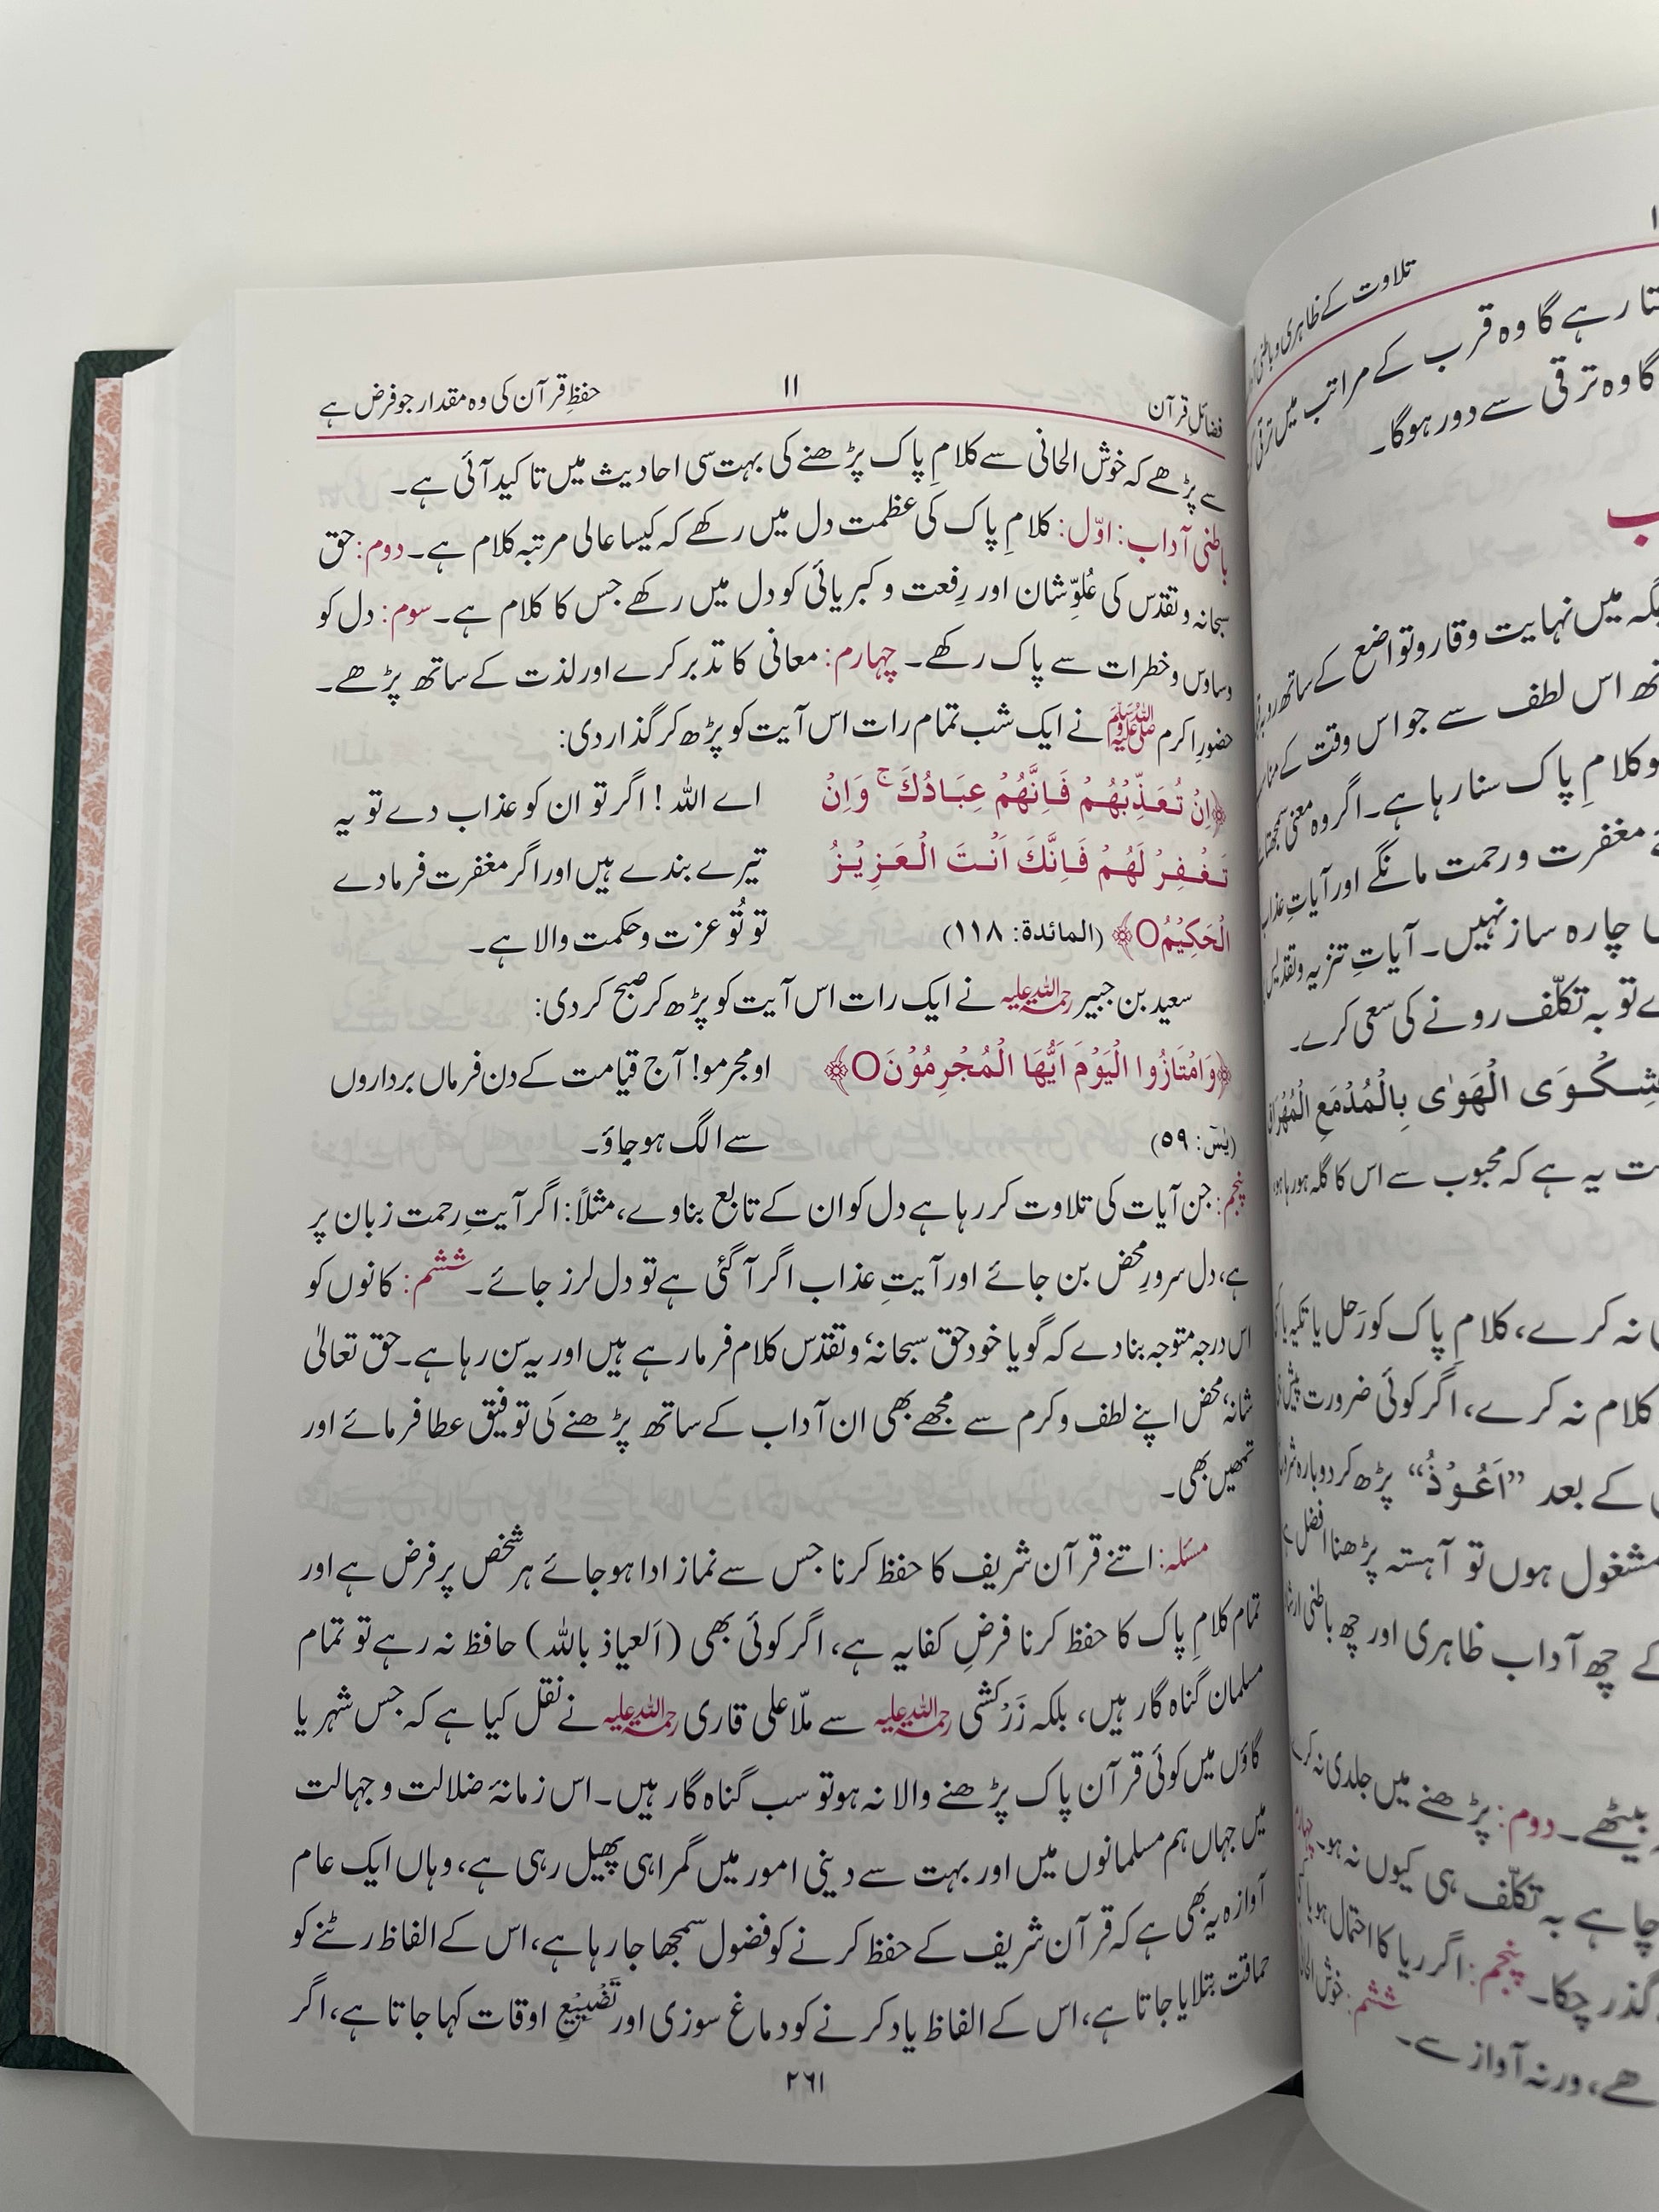 فضائلِ قرآن
۱۱
حفظِ قرآن کی وہ مقدار جو فرض ہے
سے پڑھے کہ خوش الحانی سے کلامِ پاک پڑھنے کی بہت سی احادیث میں تاکید آئی ہے۔
باطنی آداب: اوّل: کلامِ پاک کی عظمت دل میں رکھے کہ کیسا عالی مرتبہ کلام ہے۔ دوم: حق
سبحانہ وتقدّس کی عُلوِّ شان اور رِفعت و کبریائی کو دل میں رکھے جس کا کلام ہے۔ سوم: دل کو
وساوس وخطرات سے پاک رکھے۔ چہارم: معانی کا تدبر کرے اور لذت کے ساتھ پڑھے۔
حضورِ اکرم ﷺ نے ایک شب تمام رات اس آیت کو پڑھ کر گذار دی:
﴿اِنْ تُعَذِّبْهُمْ فَاِنَّهُمْ عِبَادُكَ ۚ وَاِنْ اے اللہ! اگر تو ان کو عذاب دے تو یہ
تَغْفِرْ لَهُمْ فَاِنَّكَ اَنْتَ الْعَزِيْزُ تیرے بندے ہیں اور اگر مغفرت فرما دے
الْحَكِيْمُ○﴾ (المائدة: ۱۱۸) تو تُو عزت وحکمت والا ہے۔
سعید بن جبیر رحمۃ اللہ علیہ نے ایک رات اس آیت کو پڑھ کر صبح کر دی:
﴿وَامْتَازُوا الْيَوْمَ اَيُّهَا الْمُجْرِمُوْنَ○﴾ او مجرمو! آج قیامت کے دن فرماں برداروں
(يٰسٓ: ٥٩) سے الگ ہو جاؤ۔
پنجم: جن آیات کی تلاوت کر رہا ہے دل کو ان کے تابع بناوے، مثلاً: اگر آیتِ رحمت زبان پر
ہے، دل سرورِ محض بن جائے اور آیتِ عذاب اگر آ گئی ہے تو دل لرز جائے۔ ششم: کانوں کو
اس درجہ متوجہ بنا دے کہ گویا خود حق سبحانہٗ وتقدّس کلام فرما رہے ہیں اور یہ سن رہا ہے۔ حق تعالیٰ
شانہٗ محض اپنے لطف وکرم سے مجھے بھی ان آداب کے ساتھ پڑھنے کی توفیق عطا فرمائے اور
تمھیں بھی۔
مسئلہ: اتنے قرآن شریف کا حفظ کرنا جس سے نماز ادا ہو جائے ہر شخص پر فرض ہے اور
تمام کلامِ پاک کا حفظ کرنا فرضِ کفایہ ہے، اگر کوئی بھی (اَلعیاذ باللہ) حافظ نہ رہے تو تمام
مسلمان گناہ گار ہیں، بلکہ زَرْکشی رحمۃ اللہ علیہ سے ملّا علی قاری رحمۃ اللہ علیہ نے نقل کیا ہے کہ جس شہر یا
گاؤں میں کوئی قرآن پاک پڑھنے والا نہ ہو تو سب گناہ گار ہیں۔ اس زمانۂ ضلالت وجہالت
میں جہاں ہم مسلمانوں میں اور بہت سے دینی امور میں گمراہی پھیل رہی ہے، وہاں ایک عام
آوازہ یہ بھی ہے کہ قرآن شریف کے حفظ کرنے کو فضول سمجھا جا رہا ہے، اس کے الفاظ رٹنے کو
حماقت بتلایا جاتا ہے، اس کے الفاظ یاد کرنے کو دماغ سوزی اور تَضْیِیْعِ اوقات کہا جاتا ہے، اگر
۲۶۱
تلاوت کے ظاہری و باطنی
رہے گا وہ قرب کے مراتب میں ترقی
گا وہ ترقی سے دور ہوگا۔
میں نہایت وقار وتواضع کے ساتھ
اس لطف سے جو اس وقت کے
کلامِ پاک سنا رہا ہے۔ اگر وہ معنی سمجھتا
مغفرت ورحمت مانگے اور آیاتِ عذاب
چارہ ساز نہیں۔ آیاتِ تنزیہ وتقدیس
تو بہ تکلّف رونے کی سعی کرے۔
الْهَوٰى بِالْمُدْمَعِ الْمُهْرَاقِ
یہ ہے کہ محبوب سے اس کا گلہ ہو رہا ہو،
نہ کرے، کلامِ پاک کو رَحل یا تکیہ یا
کلام نہ کرے، اگر کوئی ضرورت پیش
کے بعد ”اَعُوْذُ“ پڑھ کر دوبارہ
مشغول ہوں تو آہستہ پڑھنا افضل
کے چھ آداب ظاہری اور چھ باطنی
بیٹھے۔ دوم: پڑھنے میں جلدی نہ کرے
چاہے بہ تکلّف ہی کیوں نہ ہو۔
گذر چکا۔ پنجم: اگر ریا کا احتمال ہو یا
ششم: خوش
ورنہ آواز سے۔